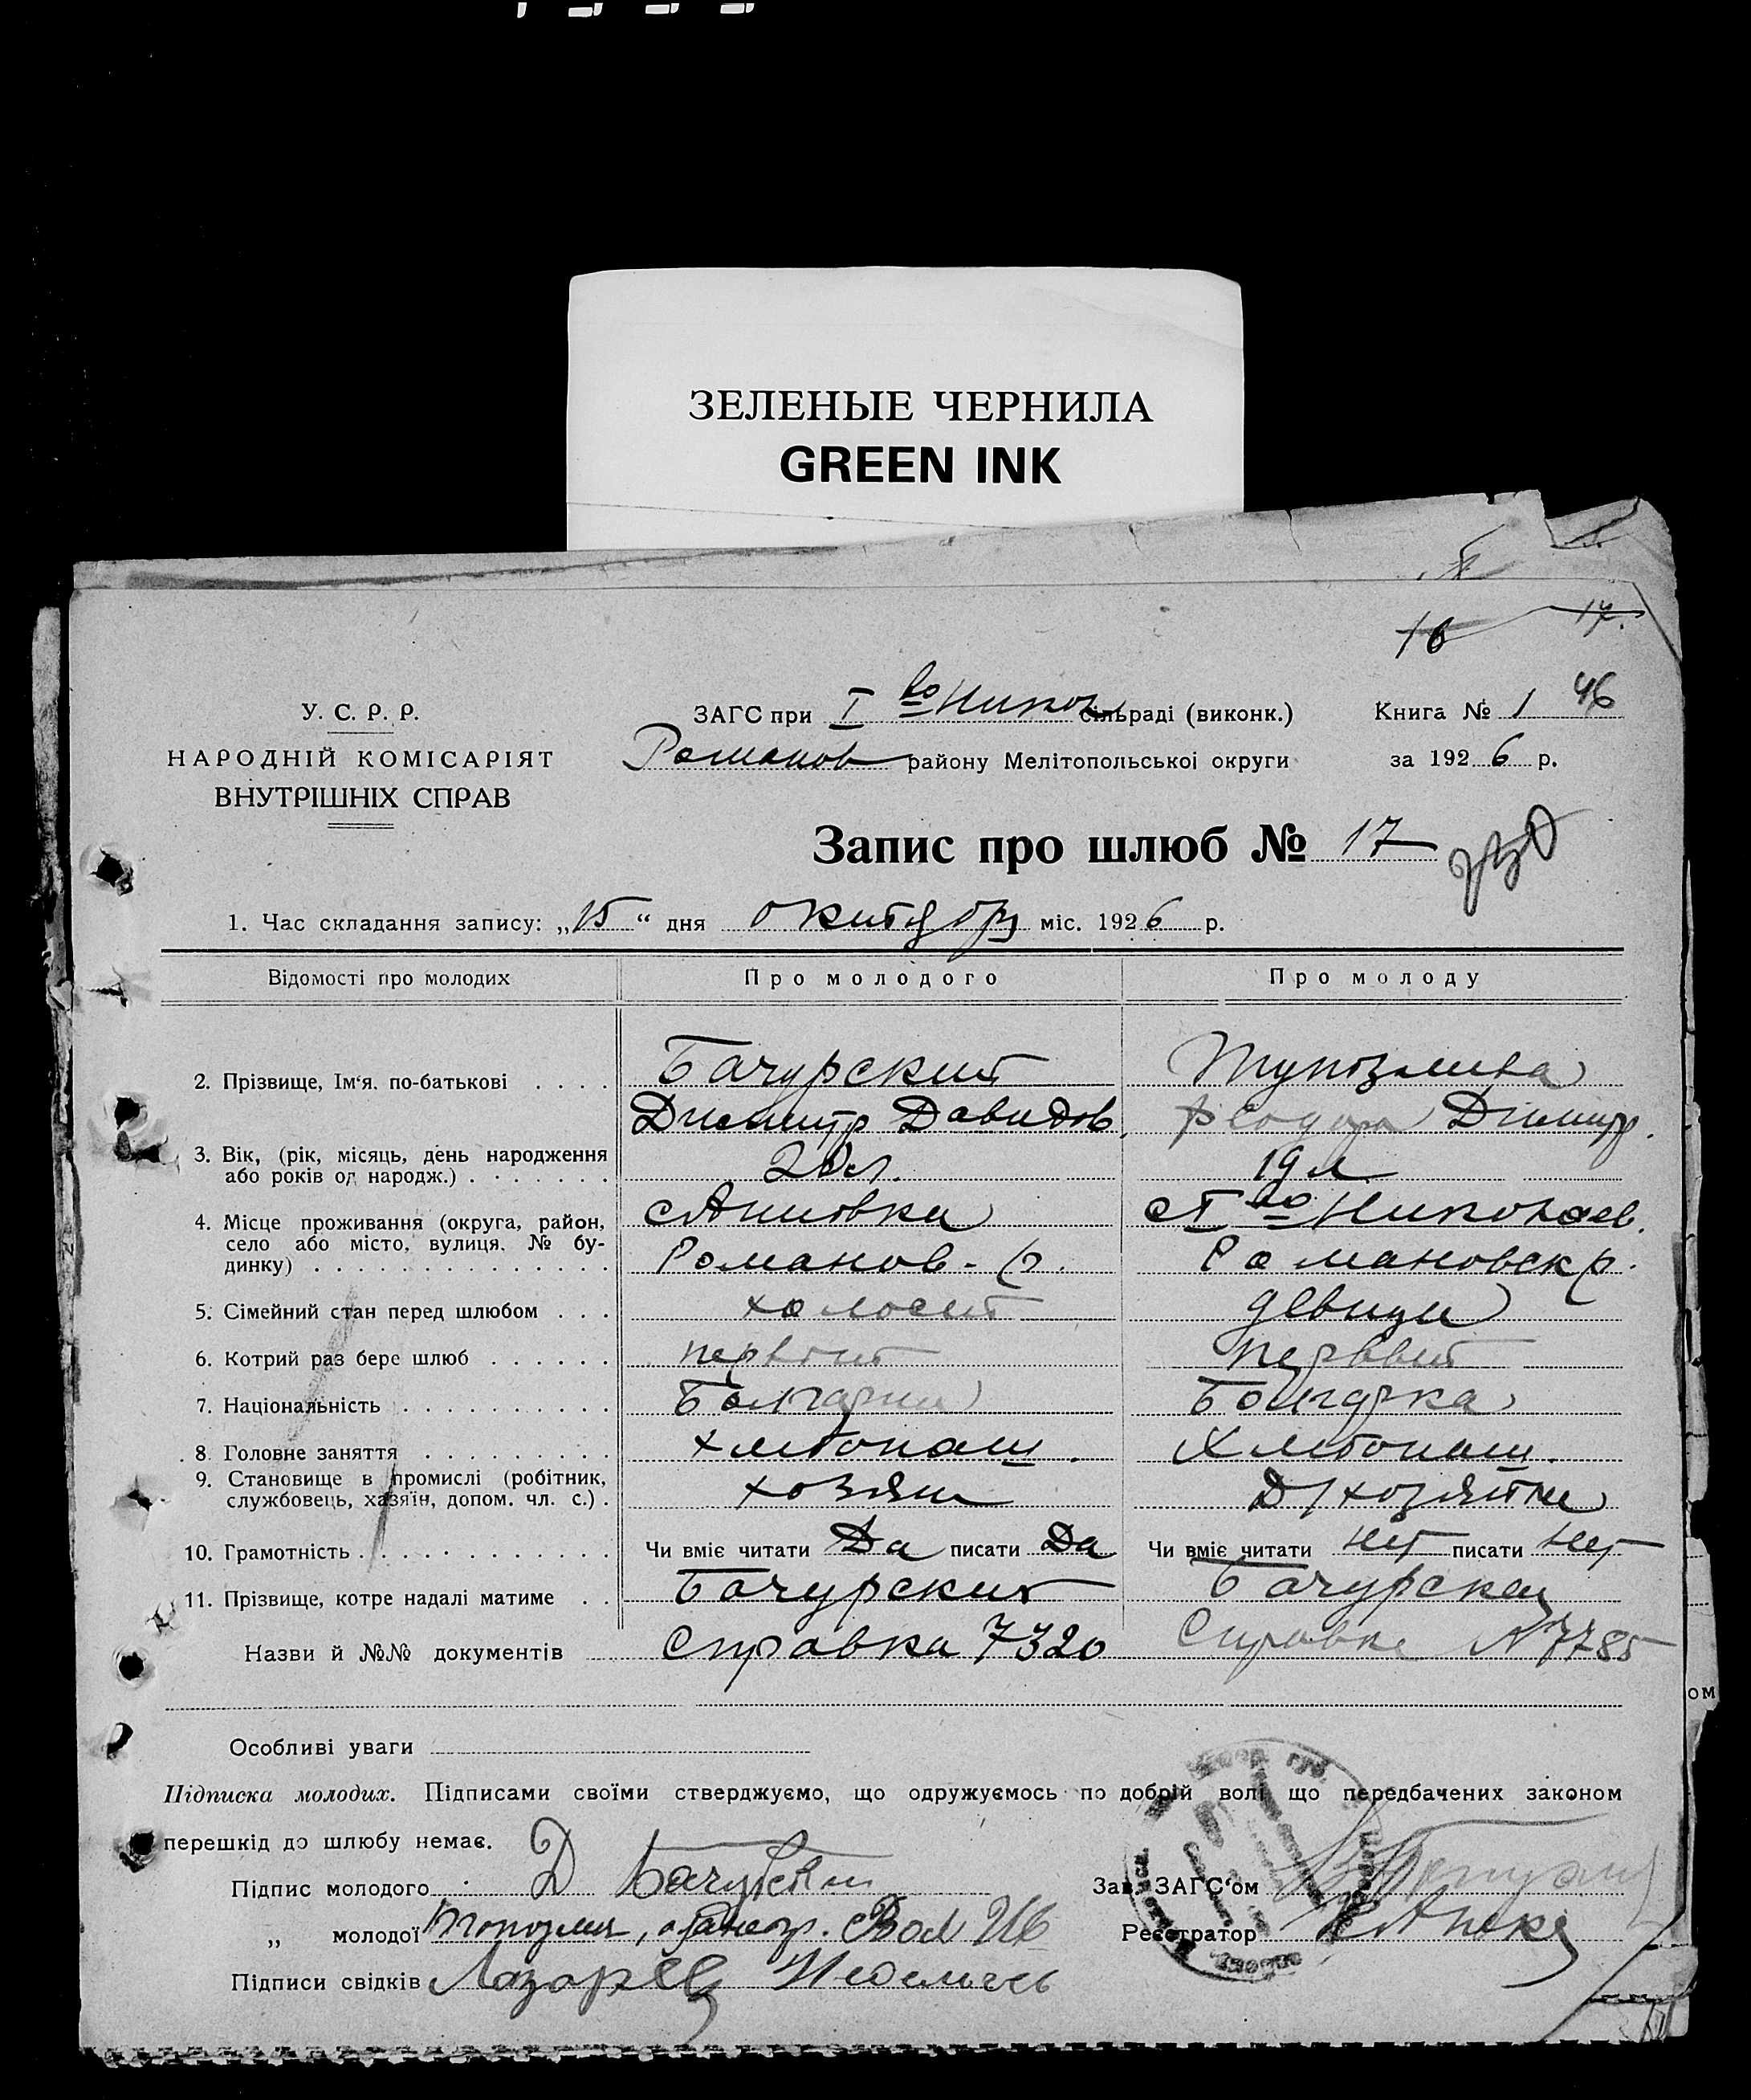 ЗЕЛЕНЫЕ ЧЕРНИЛА
GREEN INK
17.
16
У. С. Р. Р.
НАРОДНІЙ КОМІСАРІЯТ
ВНУТРІШНІХ СПРАВ
ЗАГС при I во Никол сільраді (виконк.)
Романов району Мелітопольської округи
Книга № 1 46
за 1926 р.
Запис про шлюб № 17
1. Час складання запису: „15“ дня октября міс. 1926 р.
Відомості про молодих Про молодого Про молоду
2. Прізвище, Ім‘я, по-батькові . . . . Бачурский
Димитр Давидов. Феодора Димитр.
3. Вік, (рік, місяць, день народження
або років од народж.) . . . . . . . 20 л. 19 л
4. Місце проживання (округа, район,
село або місто, вулиця, № бу-
динку) . . . . . . . . . . . . . .
с Анновка с I во Николаев.
Романов-р. Романовск р.
5. Сімейний стан перед шлюбом . . . холост девица
6. Котрий раз бере шлюб . . . . . . первый первый
7. Національність . . . . . . . . . . Болгарин Болгарка
8. Головне заняття . . . . . . . . . хлебопаш. Хлебопаш.
9. Становище в промислі (робітник,
службовець, хазяїн, допом. чл. с.) . хозяин Д/хозяйка
10. Грамотність . . . . . . . . . . . . Чи вміє читати Да писати Да Чи вміє читати нет писати нет
11. Прізвище, котре надалі матиме . . Бачурский Бачурская
Назви й №№ документів Справка 7320 Справка № 7785
Особливі уваги
Підписка молодих. Підписами своїми стверджуємо, що одружуємось по добрій волі що передбачених законом
перешкід до шлюбу немає.
Підпис молодого Д Бачурский Зав. ЗАГС‘ом
„ молодої Реєстратор
Підписи свідків Лазарев
ом